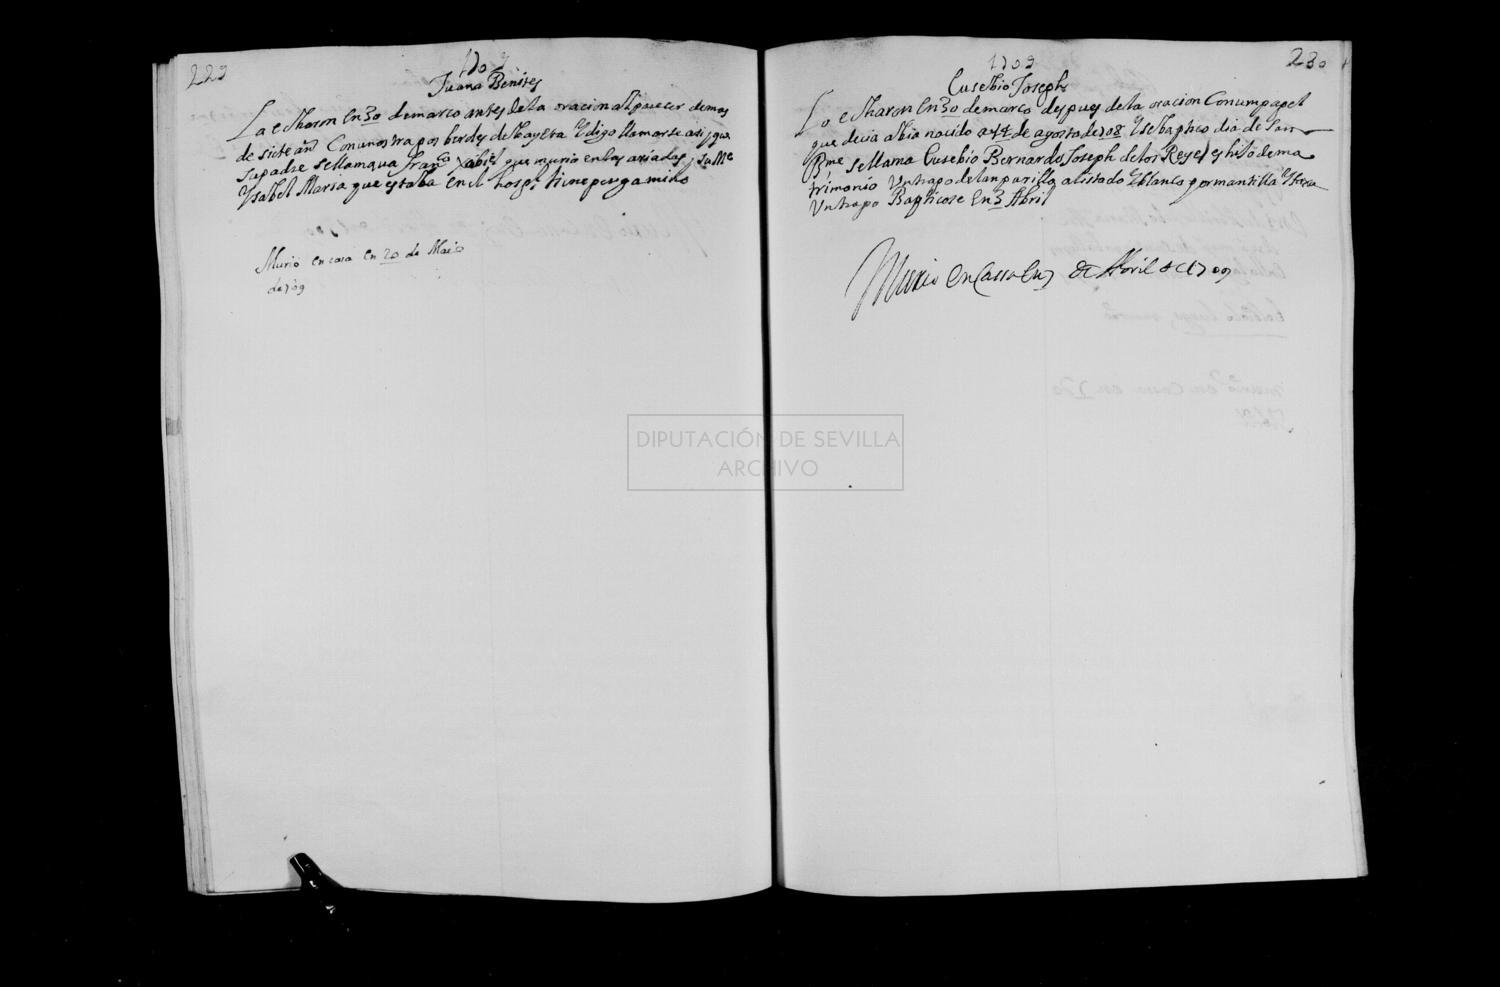 229
1709
Juana Benites
La echaron en 30 de marco antes de la oracion al parecer de mas
de siete añ Con unos trapos berdes de bayeta Y digo llamarse asi y que
su padre se llamaua Fran.co Xabiel que murio en las ariadas y su Me
Ysabel Maria que estaba en el hosp.l tiene pergamino
Murio en casa en 20 de Maio
de 709
230
1709
Eusebio Joseph
Lo echaron en 30 de marco despues de la oracion Con un papel
que decia abia nacido a 14 de agosto de 708 Y se baptico dia de San
Bme se llama Eusebio Bernardo Joseph de los Reyes es hijo de ma
trimonio Un trapo de lanparilla a listado Y blanco por mantilla
Un trapo Bapticose en 3 Abril
Murio en Cassa en 7 de Abril de 1709
DIPUTACIÓN DE SEVILLA
ARCHIVO